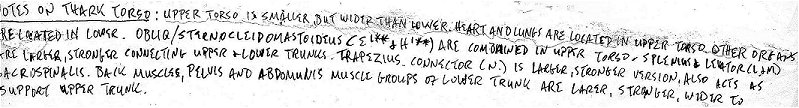 OTES ON THARK TORSO: UPPER TORSO IS SMALLER, BUT WIDER THAN LOWER. HEART AND LUNGS ARE LOCATED IN UPPER TORSO. OTHER ORGANS
RE LOCATED IN LOWER. OBLIQ/STERNOCLEIDOMASTOIDEUS (E1** & H1**) ARE COMBINED IN UPPER TORSO. SPLENIUS & LEVATOR (L&M)
RE LARGER, STRONGER CONNECTING UPPER & LOWER TRUNKS. TRAPEZIUS. CONNECTOR (N.) IS LARGER, STRONGER VERSION, ALSO ACTS AS
SACROSPINALIS. BACK MUSCLES, PELVIS AND ABDOMINIS MUSCLE GROUPS OF LOWER TRUNK ARE LARER, STRONGER, WIDER TO
SUPPORT UPPER TRUNK.